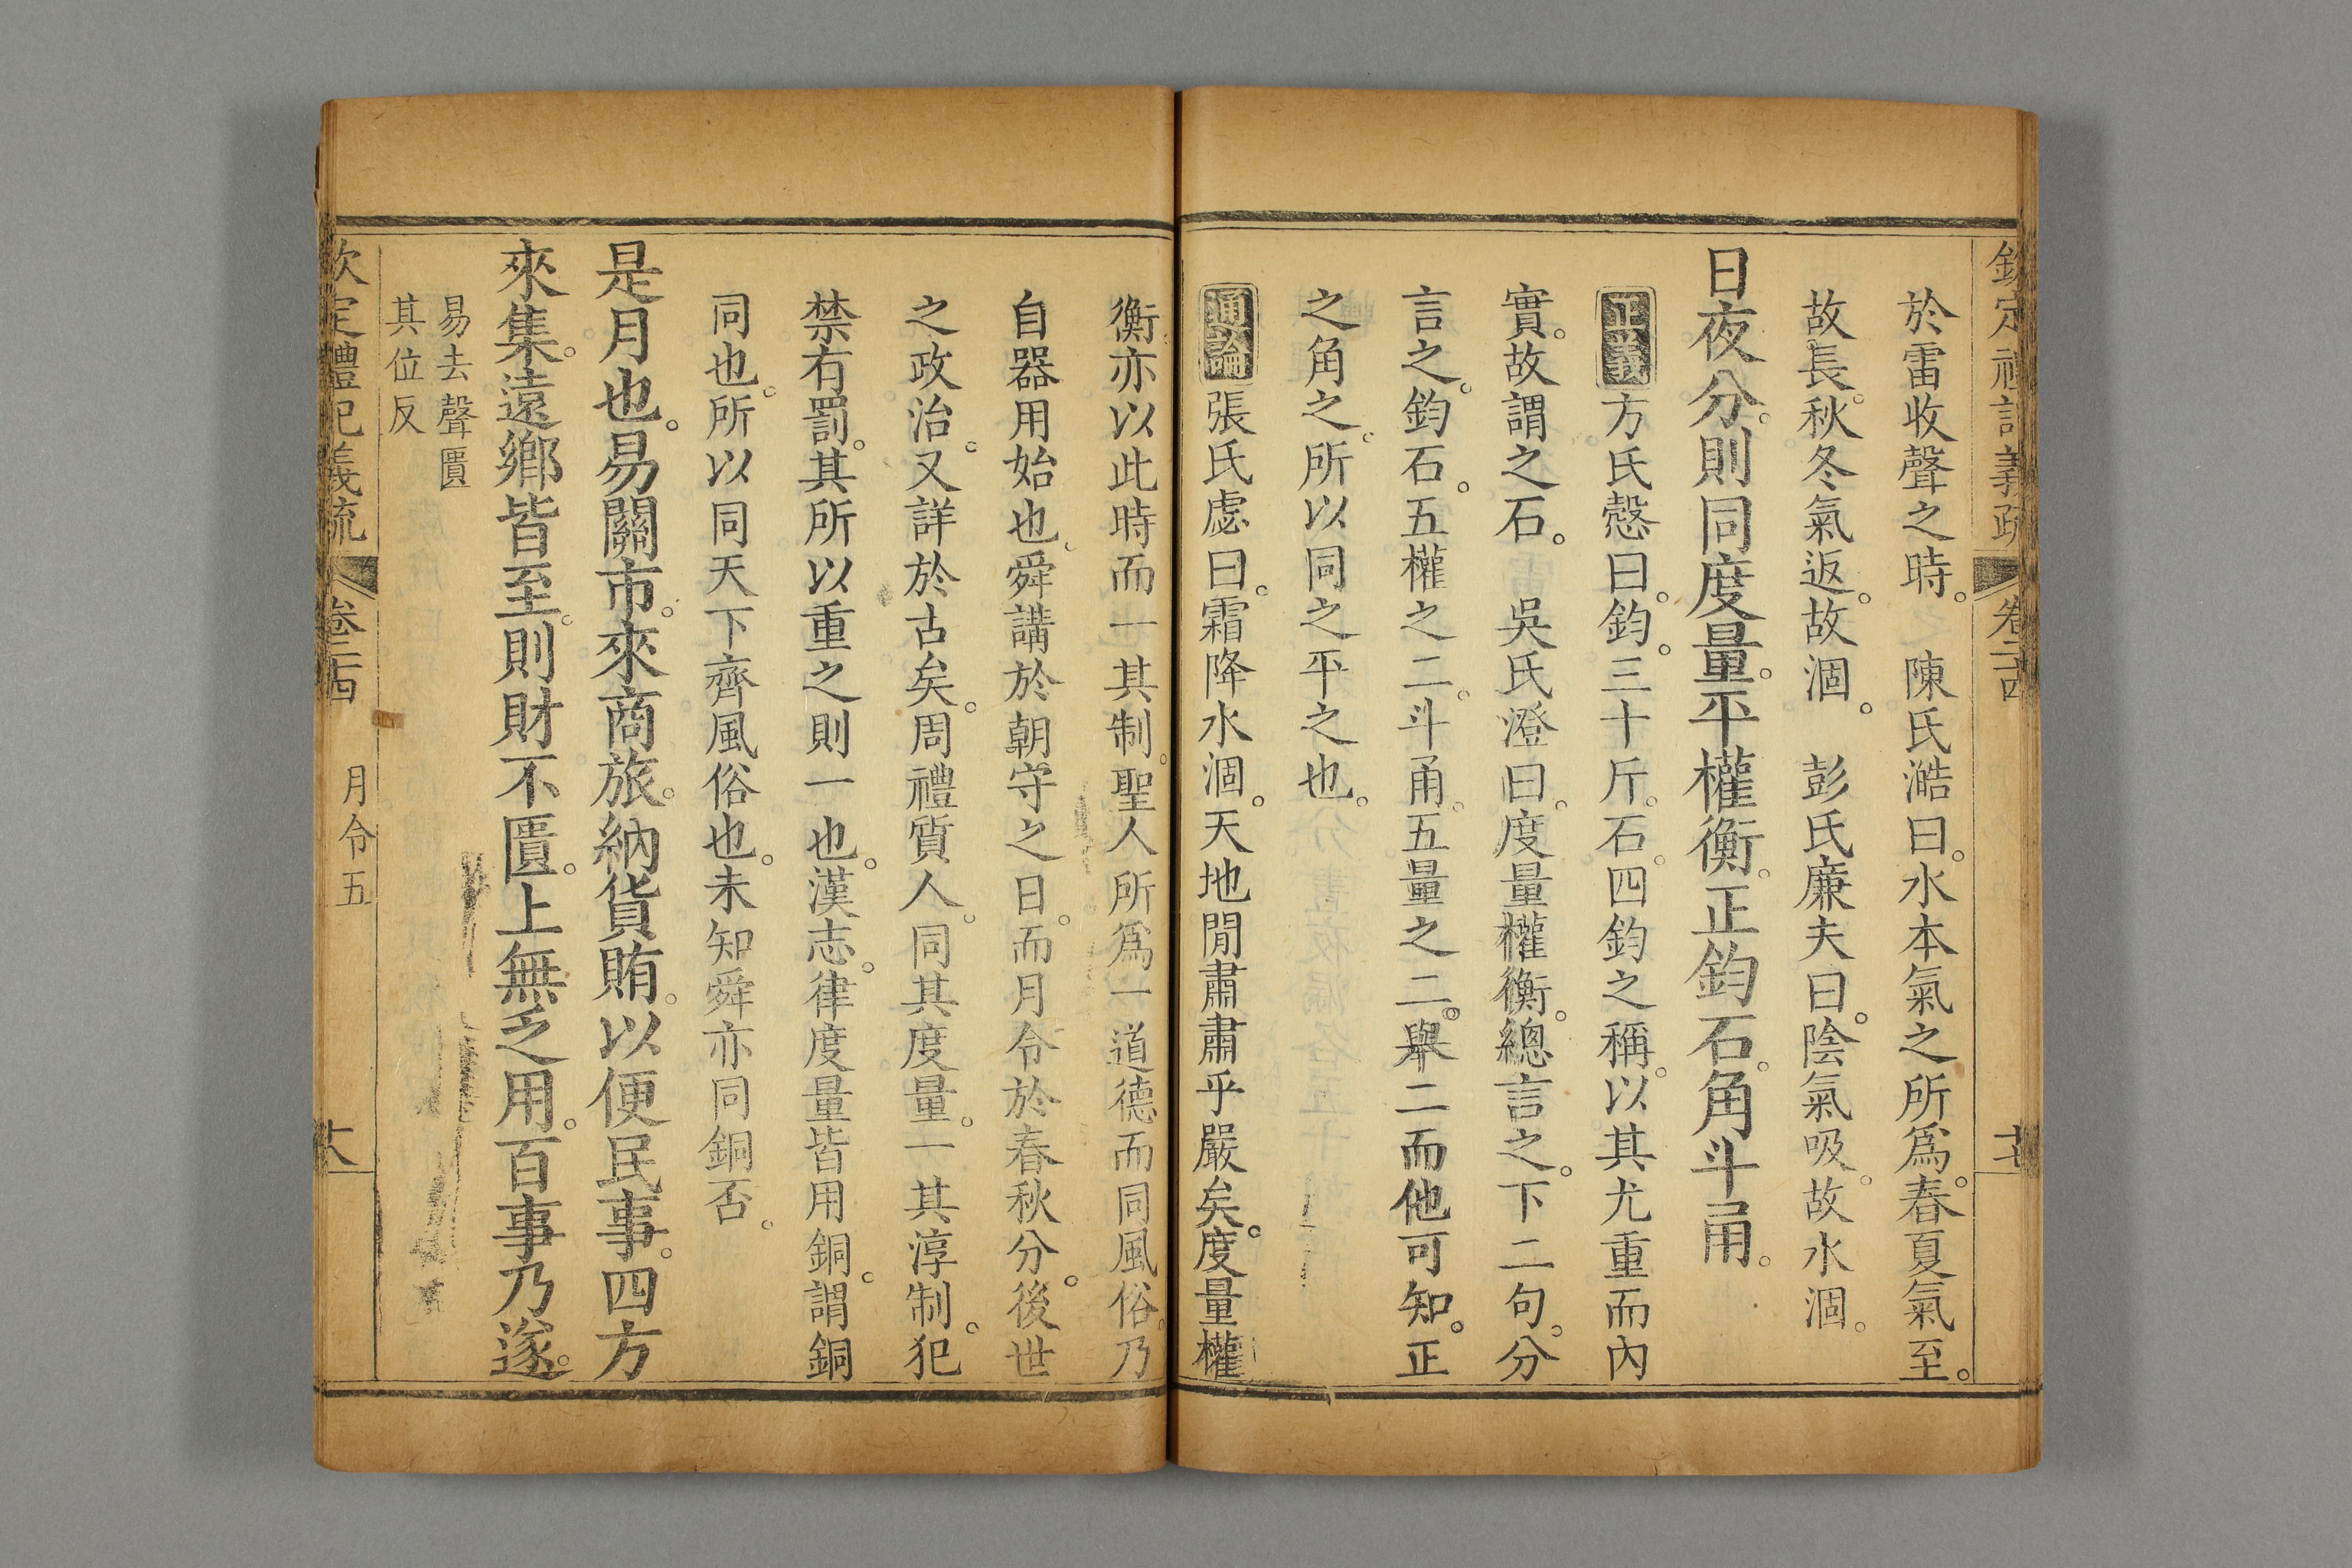 欽定禮記義疏 卷二十四
於雷收聲之時。 陳氏澔曰。水本氣之所爲。春夏氣至。
故長。秋冬氣返。故涸。 彭氏廉夫曰。陰氣吸。故水涸。
日夜分。則同度量。平權衡。正鈞石。角斗甬。
正義方氏慤曰。鈞。三十斤。石。四鈞之稱。以其尤重而內
實。故謂之石。 吳氏澄曰。度量權衡。總言之。下二句。分
言之。鈞石。五權之二。斗甬。五量之二。舉二而他可知。正
之角之。所以同之平之也。
通論張氏虙曰。霜降水涸。天地閒肅肅乎嚴矣。度量權
衡。亦以此時而一其制。聖人所爲一道德而同風俗。乃
自器用始也。舜講於朝守之日。而月令於春秋分。後世
之政治。又詳於古矣。周禮質人。同其度量。一其淳制。犯
禁有罰。其所以重之則一也。漢志。律度量皆用銅。謂銅
同也。所以同天下齊風俗也。未知舜亦同銅否。
是月也。易關市。來商旅。納貨賄。以便民事。四方
來集。遠鄉皆至。則財不匱。上無乏用。百事乃遂。
易去聲匱
其位反
欽定禮記義疏 卷二十四 月令五